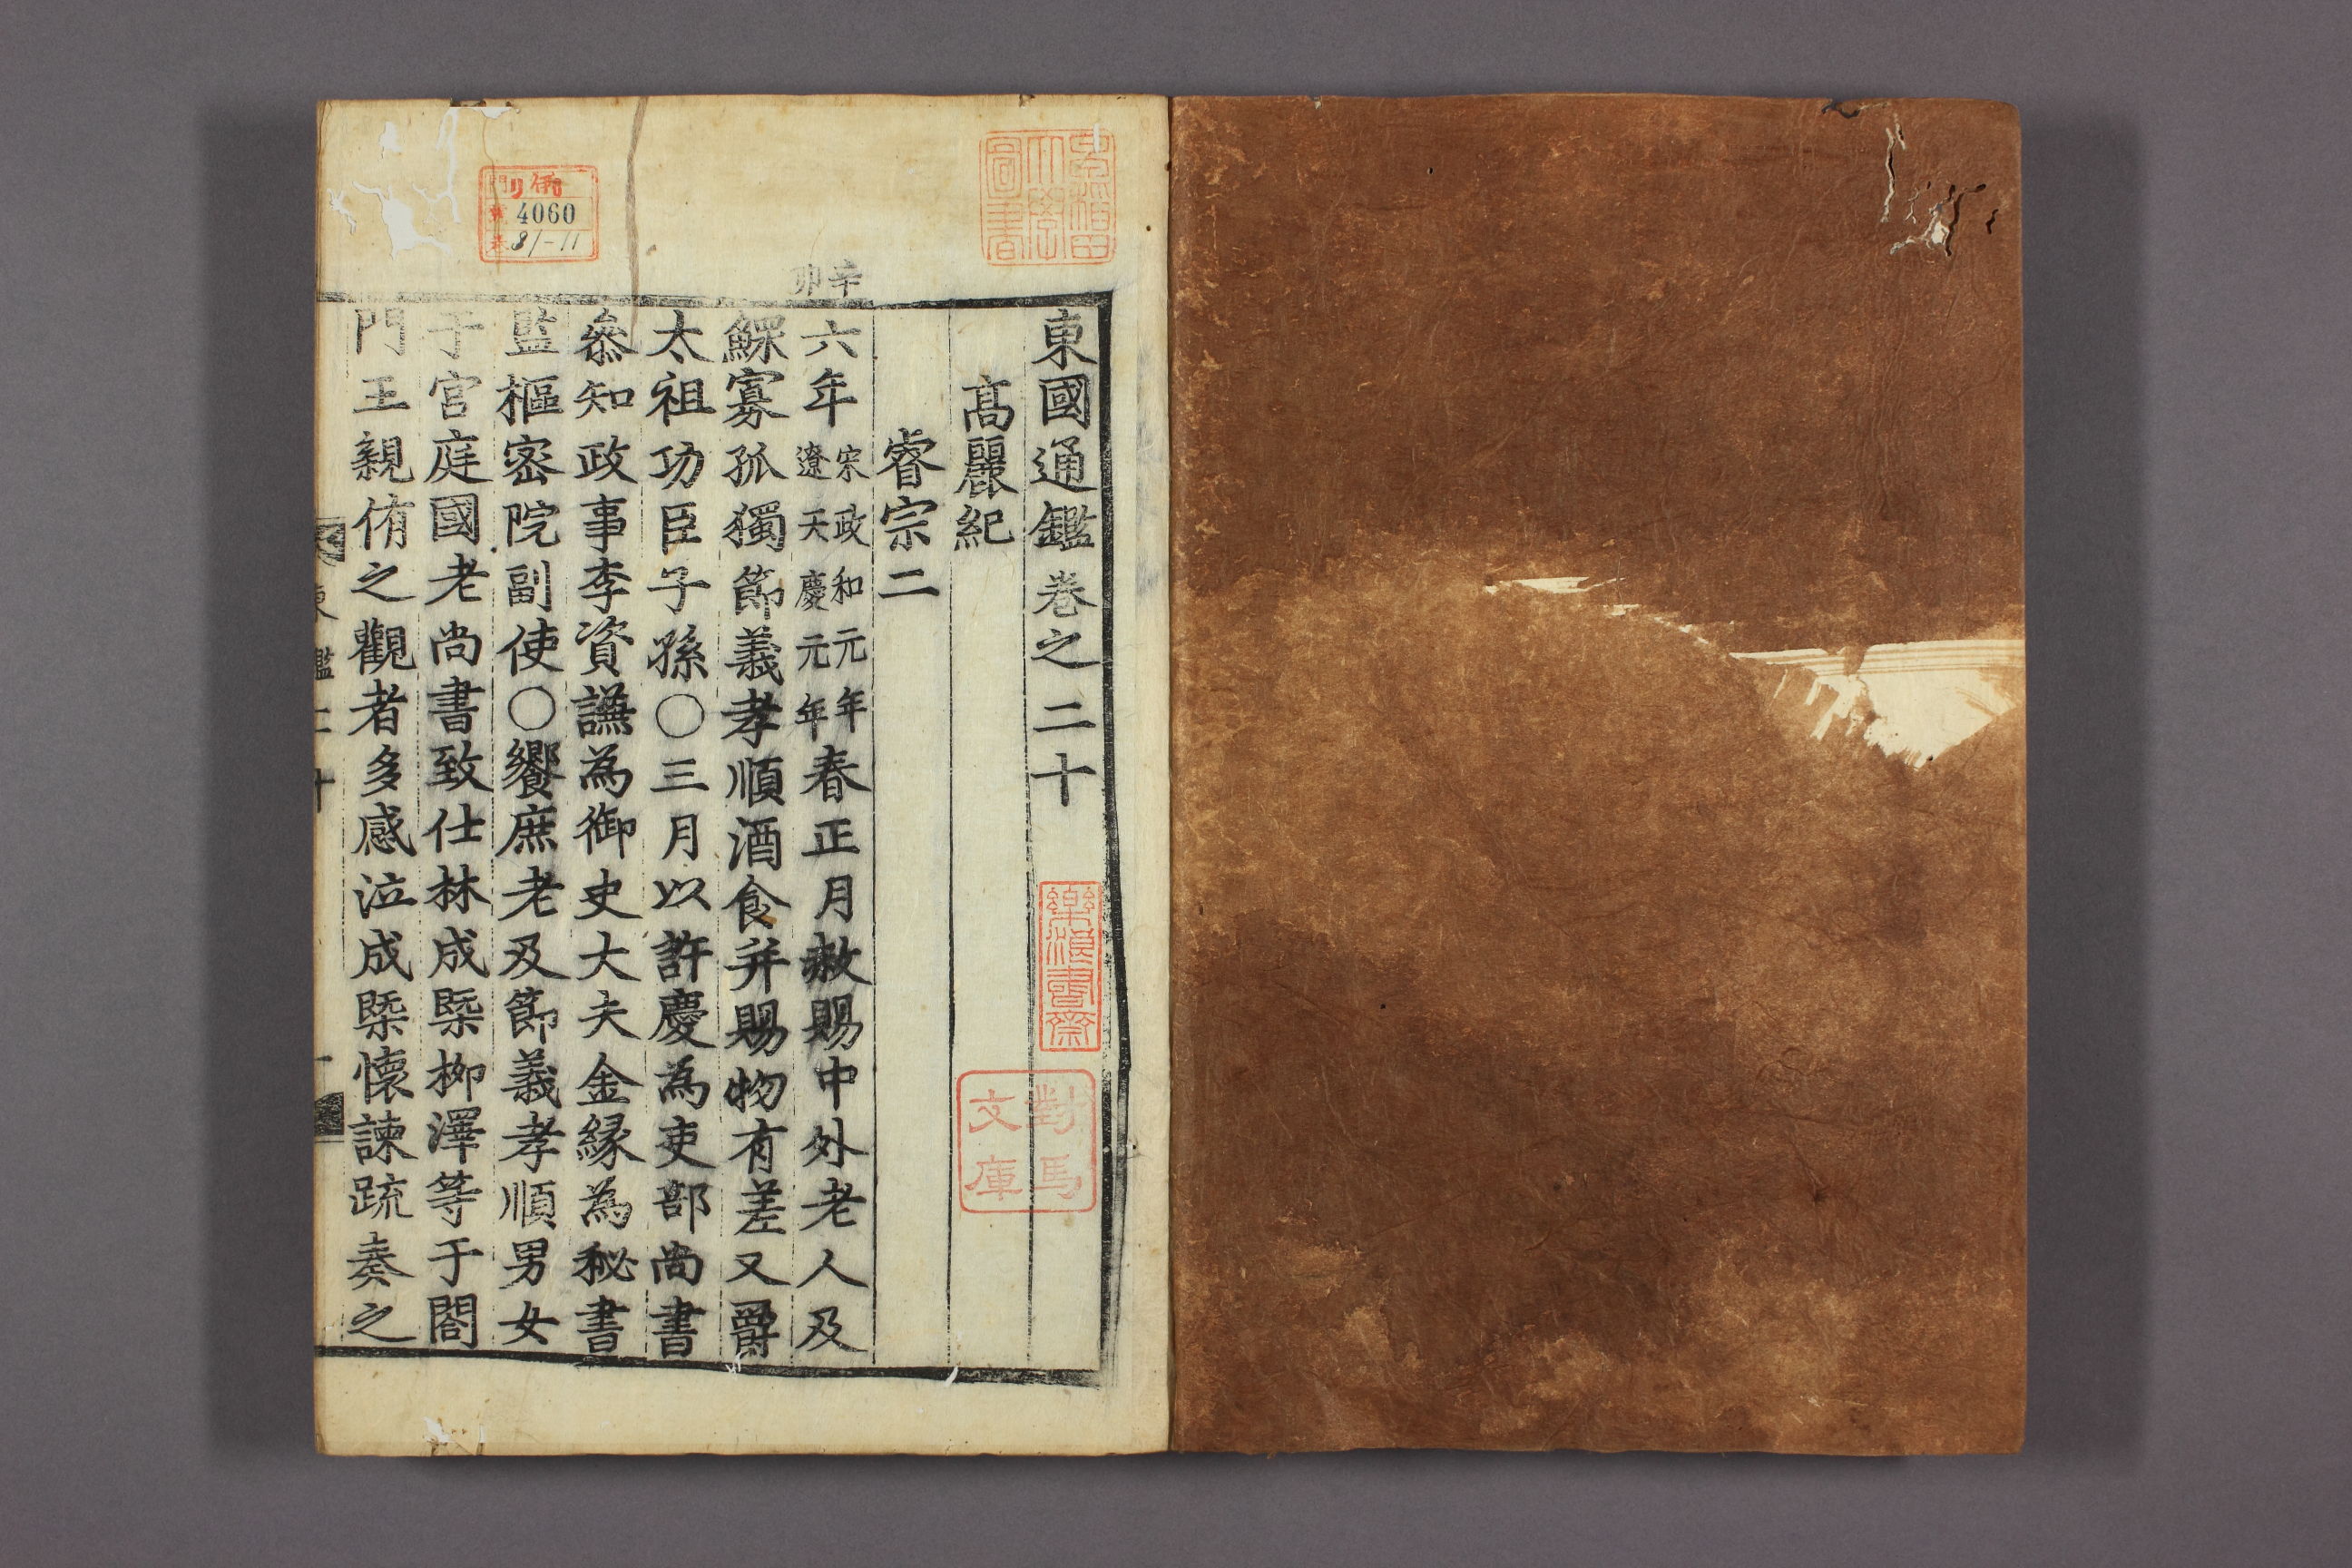 東國通鑑卷之二十
高麗紀
睿宗二
辛卯
六年宋政和元年遼天慶元年春正月赦賜中外老人及
鰥寡孤獨節義孝順酒食并賜物有差又爵
太祖功臣子孫○三月以許慶為吏部尚書
叅知政事李資謙為御史大夫金緣為秘書
監樞密院副使○饗庶老及節義孝順男女
于官庭國老尚書致仕林成槩柳澤等于閤
門王親侑之觀者多感泣成槩懷諫疏奏之
東鑑二十
一
早稻田大學圖書
樂浪書齋
對馬文庫
門リ
號4060
卷81-11